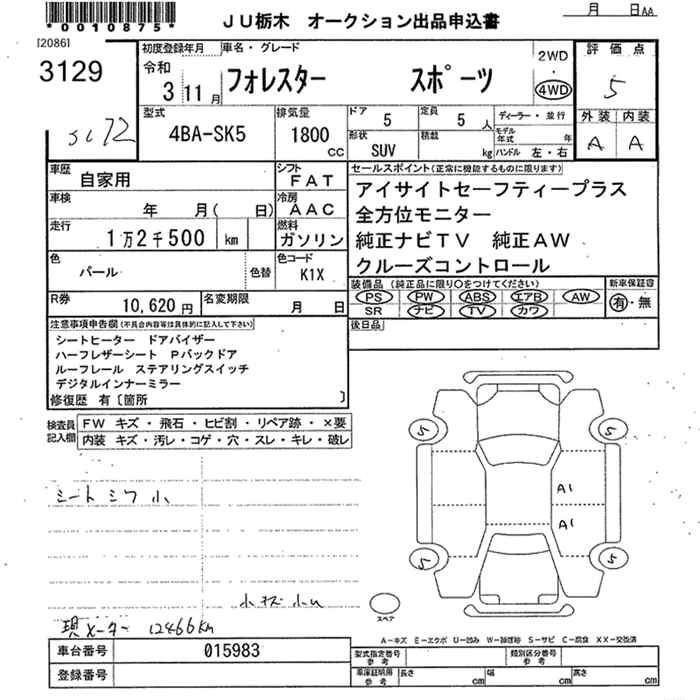 *0010875*
JU栃木 オークション出品申込書
月 日AA
[2086]
3129
初度登録年月
令和
3 11 月
車名・グレード
フォレスター スポーツ
2WD
4WD
評価点
5
型式
4BA-SK5
排気量
1800
CC
ドア
5
定員
5 人
ディーラー・並行
モデル年式 年
形状
SUV
積載
kg
ハンドル 左・右
外装 内装
A A
車歴
自家用
シフト
FAT
セールスポイント(正常に機能するものに限ります)
アイサイトセーフティープラス
全方位モニター
純正ナビTV 純正AW
クルーズコントロール
車検
年 月( 日)
冷房
AAC
走行
1万2千500 km
燃料
ガソリン
色
パール
色替
色コード
K1X
装備品 (純正品に限り○をつけてください)
PS PW ABS エアB AW
SR ナビ TV カワ
新車保証書
有・無
R券
10,620 円
名変期限
月 日
後日品
注意事項申告欄(不具合内容等は具体的に記入して下さい)
シートヒーター ドアバイザー
ハーフレザーシート Pバックドア
ルーフレール ステアリングスイッチ
デジタルインナーミラー
修復歴 有〔箇所 〕
検査員
記入欄
FW キズ・飛石・ヒビ割・リペア跡・×要
内装 キズ・汚レ・コゲ・穴・スレ・キレ・破レ
シートシワ小
小キズ小U
現メーター 12466km
5 5
A1
A1
5 5
スペア
A-キズ E-エクボ U-凹み W-補修跡 S-サビ C-腐食 XX-交換済
車台番号
015983
登録番号
型式指定番号
参考
類別区分番号
参考
車庫証明用
参考
長さ cm
幅 cm
高さ cm